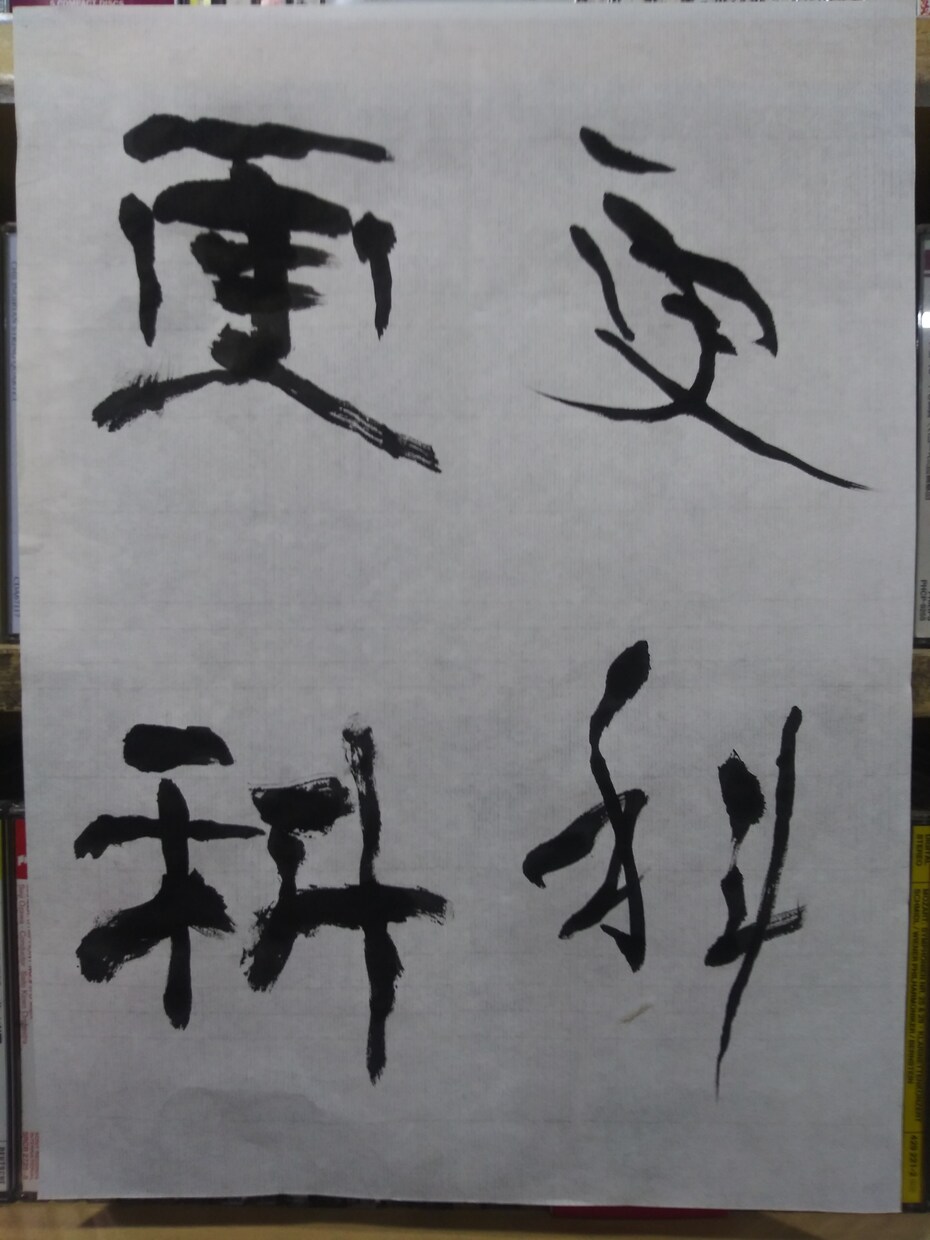 更科
更科